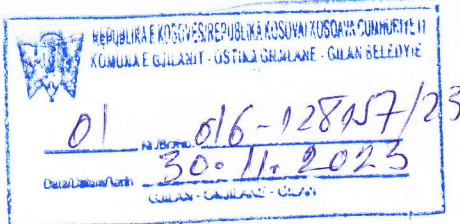 REPUBLIKA E KOSOVËS/REPUBLIKA KOSOVA/KOSOVA CUMHURIYETI
KOMUNA E GJILANIT - OPŠTINA GNJILANE - GILAN BELEDIYE
01 Nr/Br/No. 016-128157/23
Data/Datum/Tarih 30.11.2023
GJILAN - GNJILANE - GILAN